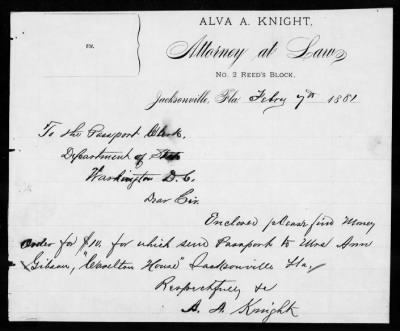 ALVA A. KNIGHT,
Attorney at Law,
No. 2 REED'S BLOCK.
Jacksonville, Fla Febry 7th 1881
To the Passport Clerk,
Department of State
Washington D.C.
Dear Sir,
Enclosed please find Money
order for $10, for which send Passport to Mrs Ann
Gibson, "Carelton House" Jacksonville Fla,
Respectfully &c
A. A. Knight